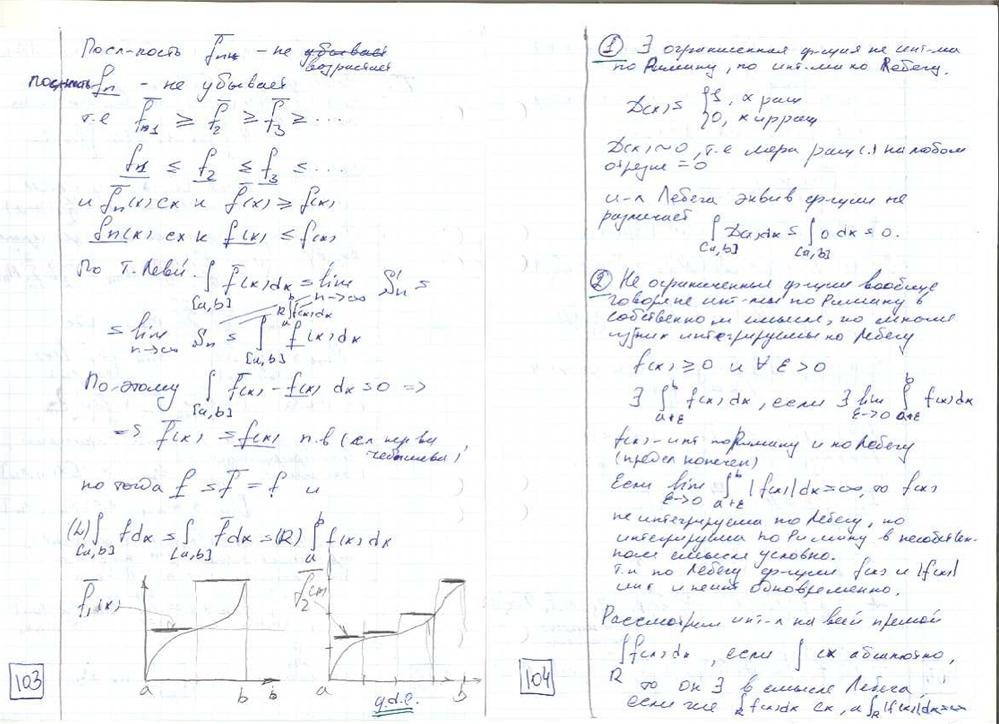 Посл-ность f̅ₙ - не убывает
возрастает
f̲ₙ - не убывает
т.е f̅₁ ≥ f̅₂ ≥ f̅₃ ≥ ...
f̲₁ ≤ f̲₂ ≤ f̲₃ ≤ ...
и f̅ₙ(x) сх к f̅(x) ≥ f(x)
f̲ₙ(x) сх к f̲(x) ≤ f(x)
По т. Леви ∫ f̅(x)dx = lim Sₙ =
[a,b] n→∞
R∫ₐᵇ f(x)dx
= lim Sₙ = ∫ f̲(x)dx
n→∞ [a,b]
По-этому ∫ f̅(x) - f̲(x) dx = 0 =>
[a,b]
=> f̅(x) = f̲(x) п.в (сл нер-ва
Чебышева)
но тогда f̲ = f̅ = f и
(L)∫ fdx = ∫ f̅dx = (R)∫ₐᵇ f(x)dx
[a,b] [a,b]
f̅₁(x) f̅₂(x)
a b a b
q.d.e.
103
① ∃ ограниченная ф-ция не инт-ма
по Риману, но инт-ма по Лебегу.
D(x) = {1, x рац
{0, x иррац
D(x) ~ 0, т.е мера рац (.) на любом
отрезке = 0
и-л Лебега эквив ф-ции не
различает
∫ D(x)dx = ∫ 0 dx = 0.
[a,b] [a,b]
② Не ограниченные ф-ции вообще
говоря не инт-мы по Риману в
собственном смысле, но многие
из них интегрируемы по Лебегу
f(x) ≥ 0 и ∀ ε > 0
∃ ∫ᵇ f(x)dx, если ∃ lim ∫ᵇ f(x)dx
a+ε ε→0 a+ε
f(x) - инт по Риману и по Лебегу
(предел конечен)
Если lim ∫ᵇ |f(x)|dx = ∞, то f(x)
ε→0 a+ε
не интегрируема по Лебегу, но
интегрируема по Риману в несобствен-
ном смысле условно.
т.к по Лебегу ф-ции f(x) и |f(x)|
инт и неинт одновременно.
Рассмотрим инт-л на всей прямой
∫ f(x)dx, если ∫ сх абсолютно,
R
то он ∃ в смысле Лебега
если же ∫ f(x)dx сх, а ∫ |f(x)|dx=∞
R R
104